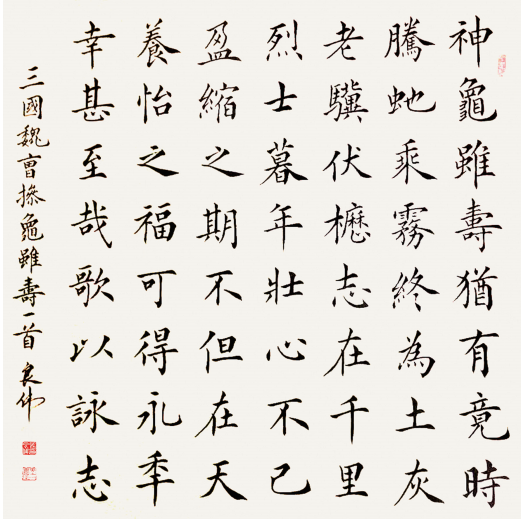 神龜雖壽猶有竟時
騰虵乘霧終為土灰
老驥伏櫪志在千里
烈士暮年壯心不已
盈縮之期不但在天
養怡之福可得永年
幸甚至哉歌以詠志
三國魏曹操龜雖壽一首 良伟